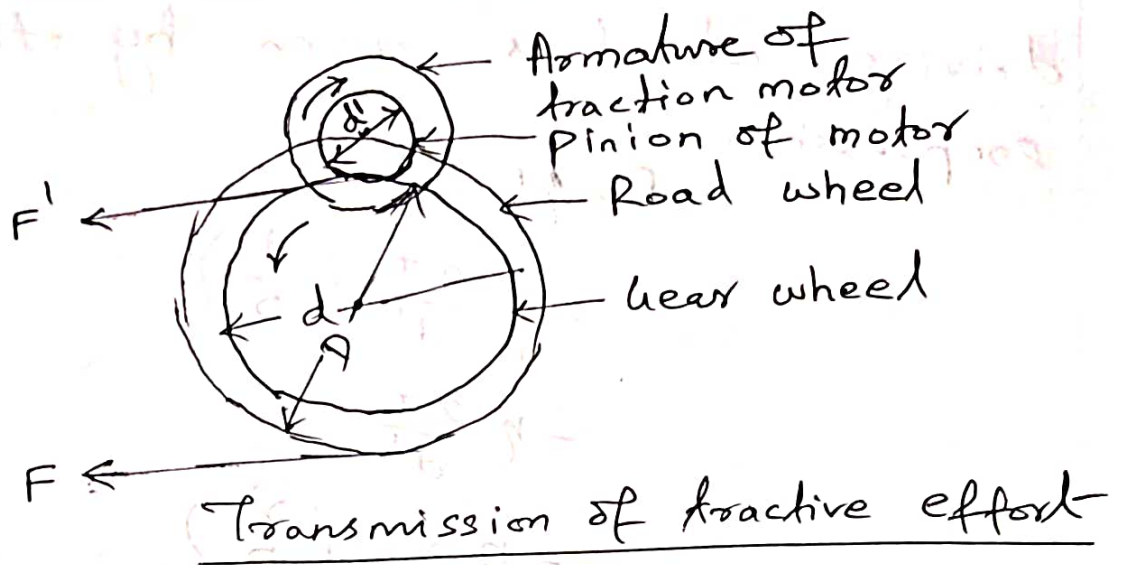 Armature of
traction motor
Pinion of motor
Road wheel
F'
d'
Gear wheel
d
D
F
Transmission of tractive effort